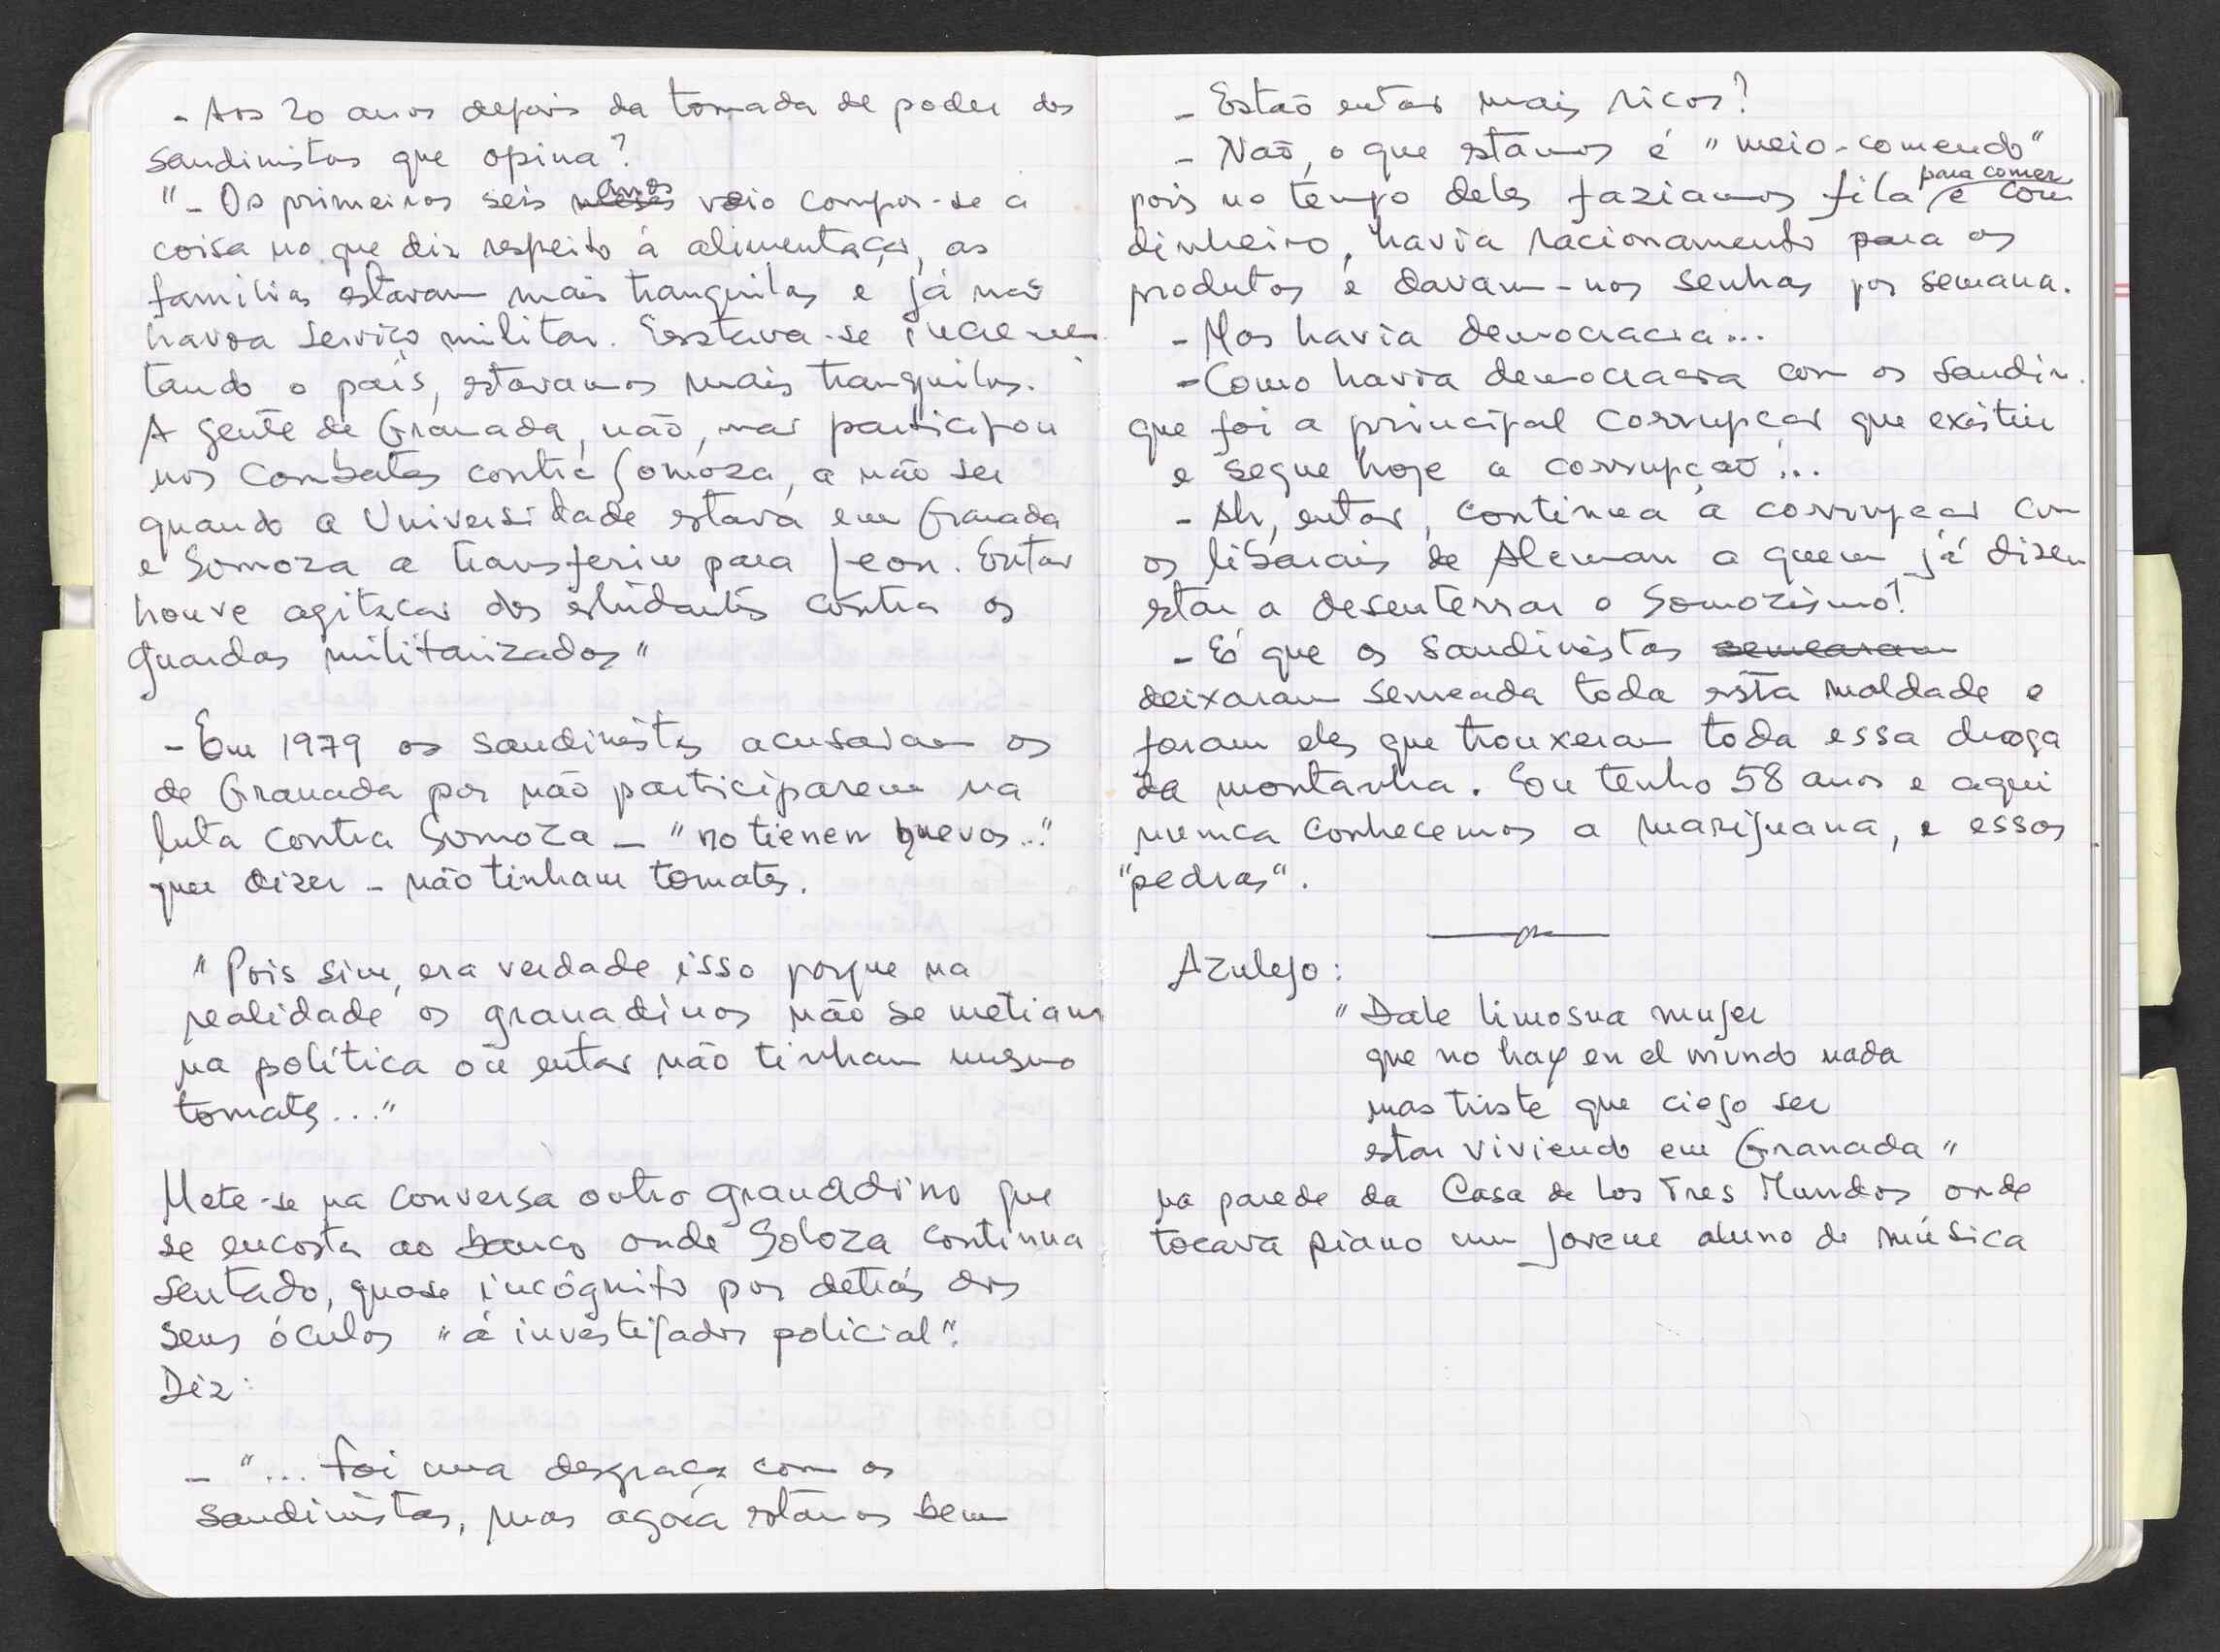 - Aos 20 anos depois da tomada de poder dos
sandinistas que opina?
"- Os primeiros seis meses anos veio compor-se a
coisa no que diz respeito à alimentação, as
familias estavam mais tranquilas e já não
havia serviço militar. Estava-se incremen
tando o país, estavamos mais tranquilos.
A gente de Granada, não, não participou
nos combates contra Somoza, a não ser
quando a Universidade estava em Granada
e Somoza a transferiu para Leon. Então
houve agitação dos estudantes contra os
guardas militarizados"
- Em 1979 os sandinistas acusavam os
de Granada por não participarem na
luta contra Somoza - "no tienen huevos..."
quer dizer - não tinham tomates.
"Pois sim, era verdade isso porque na
realidade os granadinos não se metiam
na política ou então não tinham mesmo
tomates..."
Mete-se na conversa outro granadino que
se encosta ao banco onde Soloza continua
sentado, quase incógnito por detrás dos
seus óculos "à investigador policial".
Diz:
- "... foi uma desgraça com os
sandinistas, mas agora estamos bem
- Estão então mais ricos?
- Não, o que estamos é "meio-comendo"
pois no tempo deles faziamos fila para comer e com
dinheiro, havia racionamento para os
produtos e davam-nos senhas por semana.
- Mas havia democracia...
- Como havia democracia com os sandin.
que foi a principal corrupção que existiu
e segue hoje a corrupção!..
- Ah, então, continua a corrupção com
os liberais de Aleman a quem já dizem
estar a desenterrar o Somozismo!
- É que os sandinistas semearam
deixaram semeada toda esta maldade e
foram eles que trouxeram toda essa droga
da montanha. Eu tenho 58 anos e aqui
nunca conhecemos a marijuana, e essas
"pedras".
Azulejo:
"Dale limosna mujer
que no hay en el mundo nada
mas triste que ciego ser
estar viviendo em Granada"
na parede da Casa de los Tres Mundos onde
tocava piano um jovem aluno de música